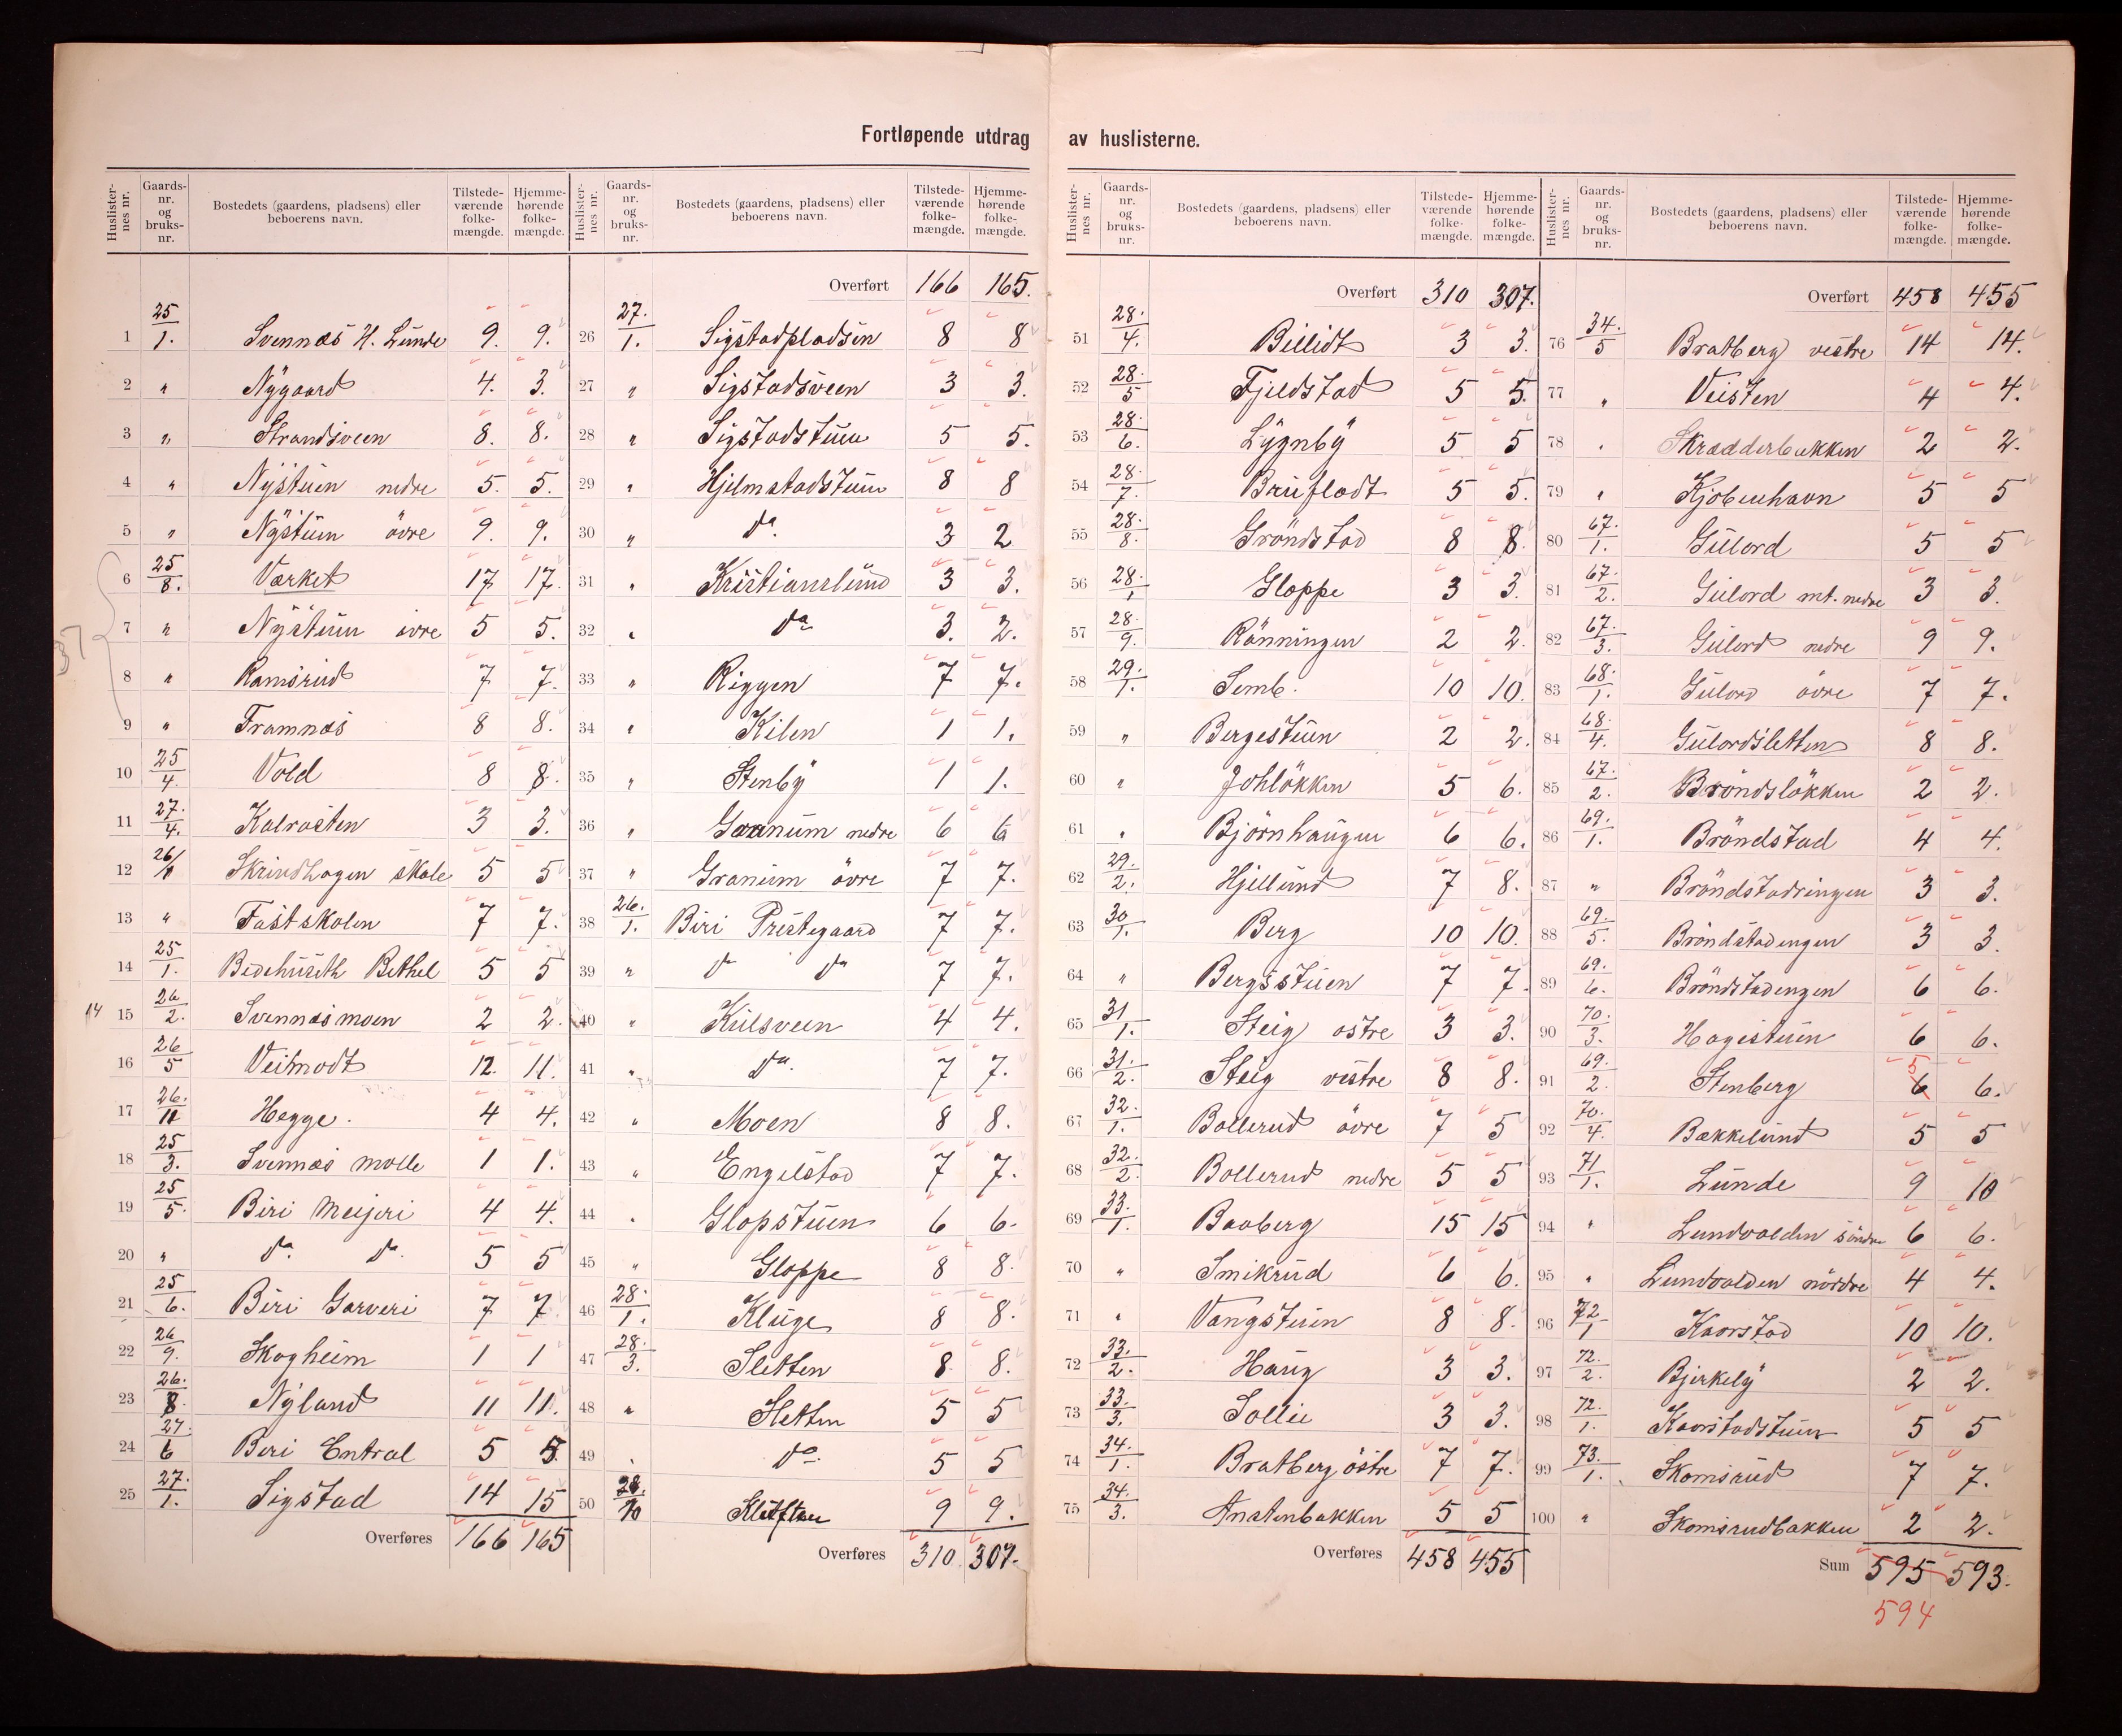 Fortløpende utdrag av huslisterne.
Huslister-nes nr. Gaards-nr. og bruks-nr. Bostedets (gaardens, pladsens) eller beboerens navn. Tilstede-værende folke-mængde. Hjemme-hørende folke-mængde.
1 25/1. Svennæs H. Lunde 9. 9.
2 " Nygaard 4. 3.
3 " Strandsveen 8. 8.
4 " Nystuen nedre 5. 5.
5 " Nystuen övre 9. 9.
6 25/8.Værket 17 17.
7 " Nystuen övre 5 5.
8 " Ramsrud 7 7.
9 " Framnæs 8 8.
37
10 25/4. Vold 8 8.
11 27./4. Kalrasten 3 3.
12 26/ Skrindhagen skole 5 5
13 " Fastskolen 7 7.
14 25/1. Bethel 5 5
14 15 26/2. Svennæsmoen 2 2.
16 26/5 Veimodt 12. 11.
17 26./11 Hegge. 4 4.
18 25/3. Svennæs mølle 1 1.
19 25/5. Biri Meijeri 4 4.
20 " da. da. 5 5
21 25/6. Biri Garveri 7 7
22 26/9. Skogheim 1 1
23 26./8. Nyland 11 11.
24 27./6 Biri Central 5 5.
25 27./1. Sigstad 14 15
Overføres 166 165
Huslister-nes nr. Gaards-nr. og bruks-nr. Bostedets (gaardens, pladsens) eller beboerens navn. Tilstede-værende folke-mængde. Hjemme-hørende folke-mængde.
Overført 166 165.
26 27./1. Sigstadpladsen 8 8
27 " Sigstadsveen 3 3.
28 " Sigstadstuen 5 5.
29 " Hjelmstadstuen 8 8
30 " da. 3 2
31 " Kristianslund 3 3.
32 " da 3. 2.
33 " Riggen 7 7.
34 " Kilen 1 1.
35 " Stenby 1 1.
36 " Granum nedre 6 6
37 " Granum övre 7 7.
38 26./1. Biri Prestegaard 7 7.
39 " da da 7 7.
40 " Kulsveen 4 4.
41 " da. 7 7.
42 " Moen 8 8.
43 " Engelstad 7 7.
44 " Glopstuen 6 6.
45 " Gloppe 8 8.
46 28./1. Kluge 8 8.
47 28./3. Sletten 8 8.
48 " Sletten 5 5
49 " da. 5 5
50 28./10 9 9.
Overføres 310 307.
Huslister-nes nr. Gaards-nr. og bruks-nr. Bostedets (gaardens, pladsens) eller beboerens navn. Tilstede-værende folke-mængde. Hjemme-hørende folke-mængde.
Overført 310 307.
51 28./4. Billidt 3 3.
52 28./5 Fjeldstad 5 5.
53 28./6. Lyngby 5 5
54 28./7. Brufladt 5 5.
55 28./8. Gröndstad 8 8.
56 28./1 Gloppe 3 3.
57 28./9. Rönningen 2 2.
58 29./1. Semb. 10 10.
59 " Bergestuen 2 2.
60 " Johlökken 5 6.
61 " Björnhaugen 6 6.
62 29./2. Hjellund 7 8.
63 30/1. Berg 10 10.
64 " Bergsstuen 7 7.
65 31/1. Steig østre 3 3.
66 31./2. Steig vestre 8 8.
67 32./1. Bollerud övre 7 5
68 32./2. Bollerud nedre 5 5
69 33./1. Baaberg 15 15
70 " Smikrud 6 6.
71 " Vangstuen 8 8.
72 33./2. Haug 3 3.
73 33./3. Sollie 3 3.
74 34./1. Bratberg östre 7 7.
75 34./3. Anstenbakken 5 5
Overføres 458 455
Huslister-nes nr. Gaards-nr. og bruks-nr. Bostedets (gaardens, pladsens) eller beboerens navn. Tilstede-værende folke-mængde. Hjemme-hørende folke-mængde.
Overført 458 455
76 34./5 Bratberg vestre 14 14.
77 " Veisten 4 4.
78 " Skrædderbakken 2 2.
79 " Kjøbenhavn 5 5
80 67./1. Gulord 5 5
81 67./2. Gulord mt. nedre 3 3.
82 67./3. Gulord nedre 9 9.
83 68./1. Gulord övre 7 7.
84 68./4. Gulordsletten 8 8.
85 67./2. Bröndslökken 2 2.
86 69./1. Bröndstad 4 4.
87 " Bröndstadringen 3 3.
88 69./5. Bröndstadengen 3 3.
89 69./6. Bröndstadengen 6 6.
90 70./3. Hagestuen 6 6.
91 69./2. Stenberg 6 5 6.
92 70./4. Bakkelund 5 5
93 71/1. Lunde 9 10
94 " Lundvolden söndre 6 6.
95 " Lundvolden nördre 4 4.
96 72/1 Kaorstad 10 10.
97 72./2. Bjerkely 2 2.
98 72./1. Kaorstadstuen 5 5
99 73./1. Skomsrud 7 7.
100 " Skomsrudbakken 2 2.
Sum 595 593.
594